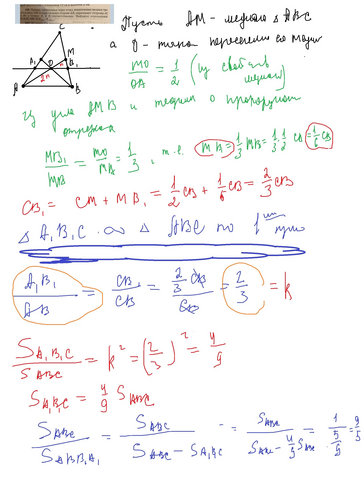 C
A₁ O M B₁
2n n
A B
Пусть AM - медиана △ ABC
а O - точка пересечения его медиан
MO/OA = 1/2 (из свойств медиан)
Из угла AMB и теореми о пропорцион
отрезках
MB₁/MB = MO/MA = 1/3 , т.е. MB₁ = 1/3 MB = 1/3 · 1/2 CB = 1/6 CB
CB₁ = CM + MB₁ = 1/2 CB + 1/6 CB = 2/3 CB
△ A₁B₁C ∾ △ ABC по 1
A₁B₁/AB = CB₁/CB = 2/3 CB/CB = 2/3 = k
S A₁B₁C / S ABC = k² = (2/3)² = 4/9
S A₁B₁C = 4/9 S ABC
S ABC / S ABB₁A₁ = S ABC / S ABC - S A₁B₁C = S ABC / S ABC - 4/9 S ABC = 1 / 5/9 = 9/5